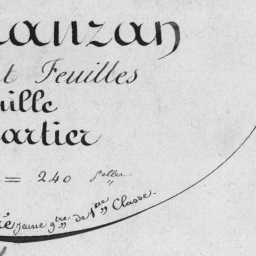 anzan
t Feuilles
uille
artier
= 240
ré jaune gtre de 1ère Classe.